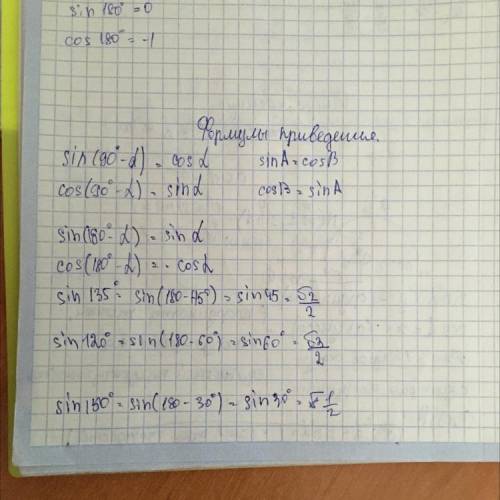 sin 180° = 0
cos 180° = -1
Формулы приведения.
sin(90°-α) = cosα sinA = cosB
cos(90°-α) = sinα cosB = sinA
sin(180°-α) = sinα
cos(180°-α) = -cosα
sin 135° = sin(180-45°) = sin45 = √2/2
sin 120° = sin(180-60°) = sin60° = √3/2
sin 150° = sin(180-30°) = sin30° = 1/2